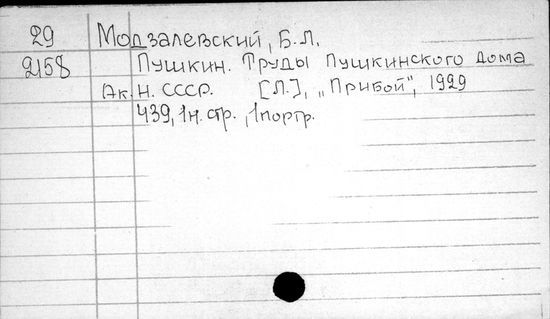 29 Модзалевский, Б.Л.
2158 Пушкин. Труды Пушкинского Дома
Ак. Н. СССР. [Л.], „Прибой", 1929
439, 1 н. стр., 1 портр.